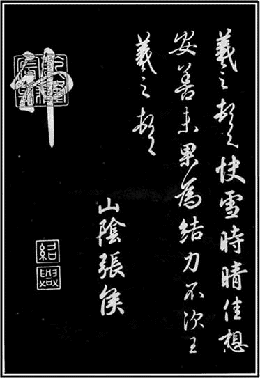 羲之頓首快雪時晴佳想
安善未果為結力不次王
羲之頓首
山陰張侯
神
紹興